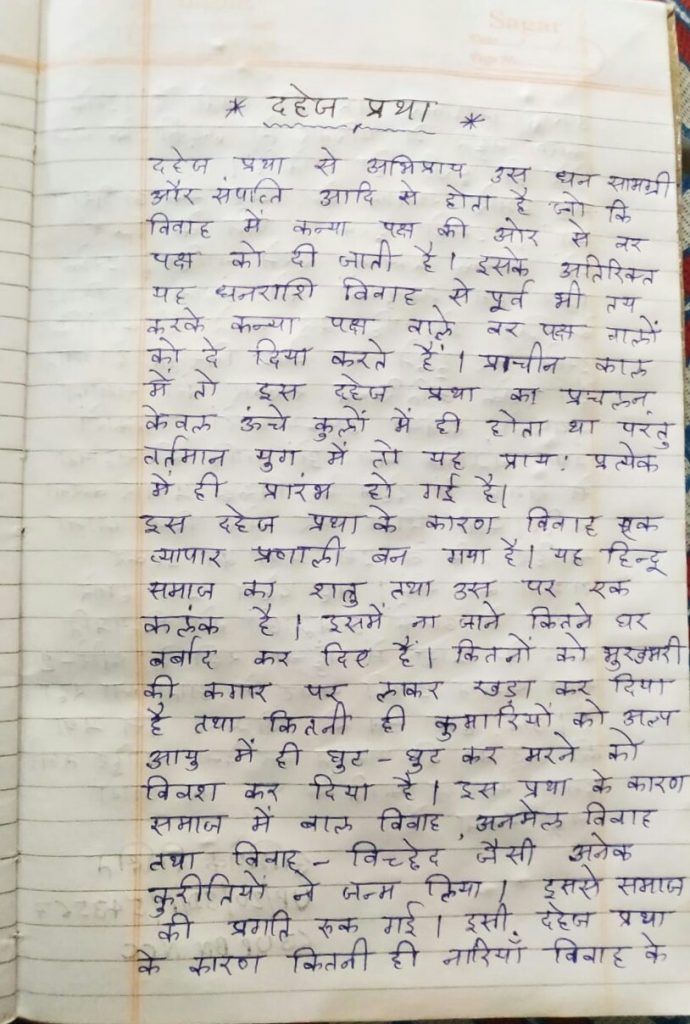 * दहेज प्रथा *
दहेज प्रथा से अभिप्राय उस धन सामग्री
और संपत्ति आदि से होता है जो कि
विवाह में कन्या पक्ष की ओर से वर
पक्ष को दी जाती है। इसके अतिरिक्त
यह धनराशि विवाह से पूर्व भी तय
करके कन्या पक्ष वाले वर पक्ष वालों
को दे दिया करते हैं। प्राचीन काल
में तो इस दहेज प्रथा का प्रचलन
केवल ऊंचे कुलों में ही होता था परंतु
वर्तमान युग में तो यह प्राय: प्रत्येक
में ही प्रारंभ हो गई है।
इस दहेज प्रथा के कारण विवाह एक
व्यापार प्रणाली बन गया है। यह हिन्दू
समाज का शत्रु तथा उस पर एक
कलंक है। इसमें ना जाने कितने घर
बर्बाद कर दिए हैं। कितनों को भुखमरी
की कगार पर लाकर खड़ा कर दिया
है तथा कितनी ही कुमारियों को अल्प
आयु में ही घुट - घुट कर मरने को
विवश कर दिया है। इस प्रथा के कारण
समाज में बाल विवाह, अनमेल विवाह
तथा विवाह - विच्छेद जैसी अनेक
कुरीतियों ने जन्म लिया। इससे समाज
की प्रगति रुक गई। इसी दहेज प्रथा
के कारण कितनी ही नारियाँ विवाह के